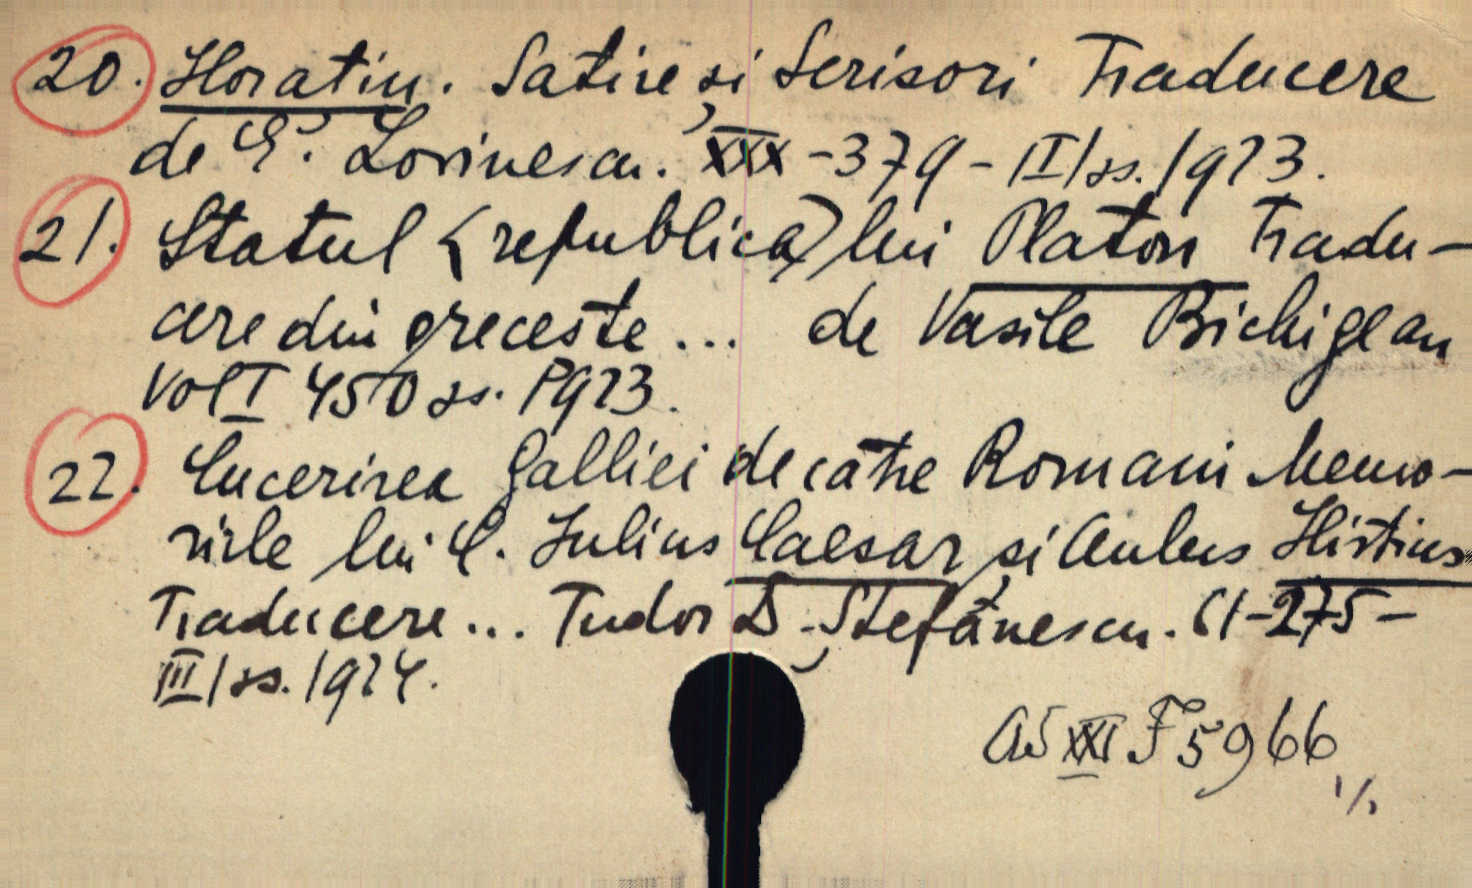 20. Horatiu. Satire și Scrisori Traducere
de E. Lovinescu. XXX-379-II/ss. 1923.
21. Statul (republica) lui Platon Tradu-
cere din greceste ... de Vasile Bichigean
Vol I 450 ss. 1923.
22. Cucerirea Galliei de catre Romani Memo-
riile lui C. Iulius Caesar și Aulus Hirtius
Traducere ... Tudor D. Ștefănescu. CI-275-
III/ss. 1924.
AŞ XXI F 5966